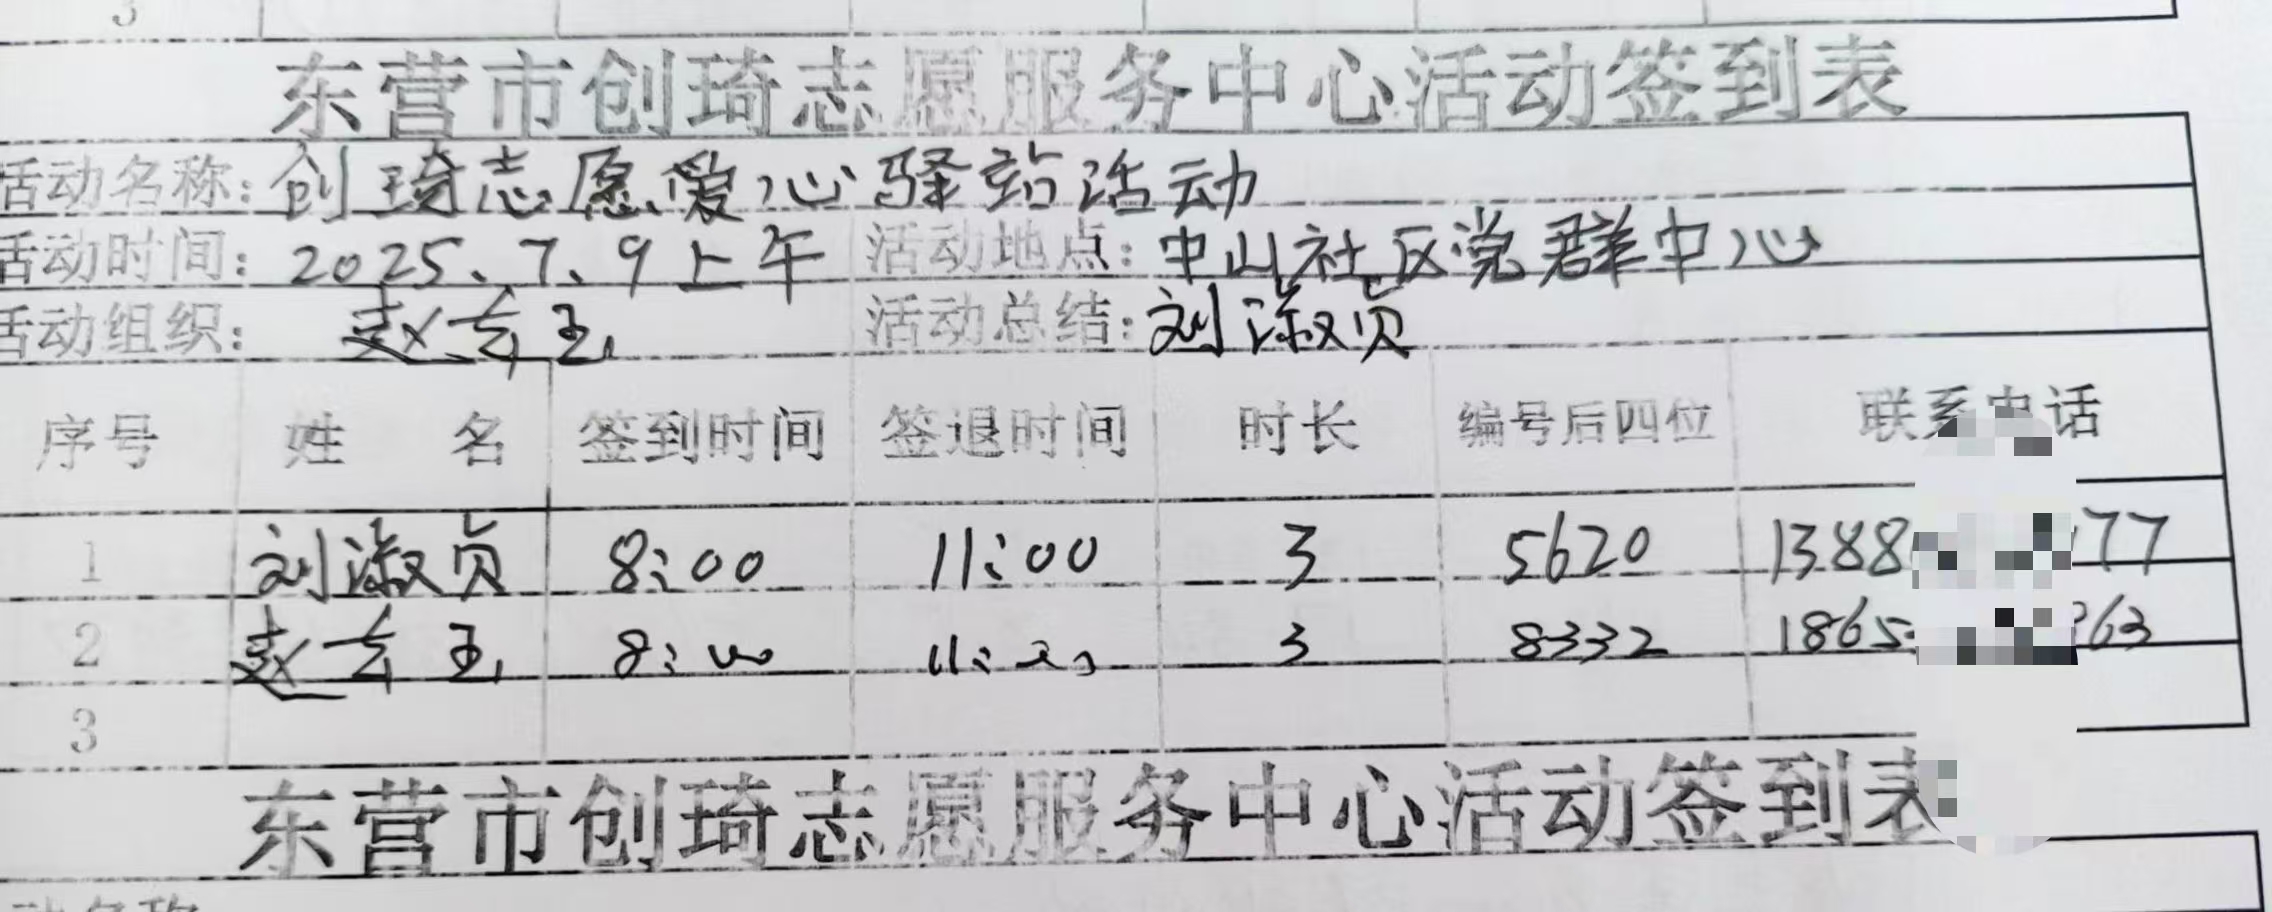 3
东营市创琦志愿服务中心活动签到表
活动名称：创琦志愿爱心驿站活动
活动时间：2025、7、9上午 活动地点：中山社区党群中心
活动组织： 赵玉 活动总结：刘淑贞
序号 姓 名 签到时间 签退时间 时长 编号后四位 联系电话
1 刘淑贞 8:00 11:00 3 5620 1388 77
2 赵 玉 8:00 3 8332 1865 63
3
东营市创琦志愿服务中心活动签到表
动名称